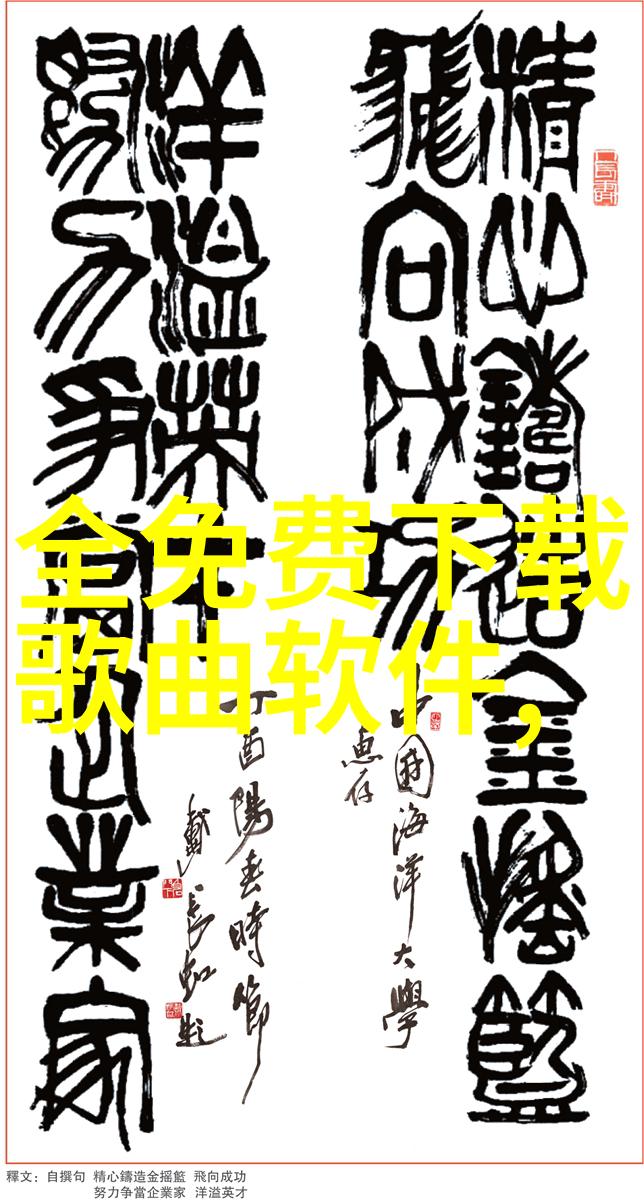 精心鑄造金摇籃
飛向成功
中國海洋大學
惠存
努力争當企業家
洋溢英才
丁酉陽春時節
戴長虹題
全免费下载
歌曲软件,
釋文：自撰句 精心鑄造金摇籃 飛向成功
努力争當企業家 洋溢英才